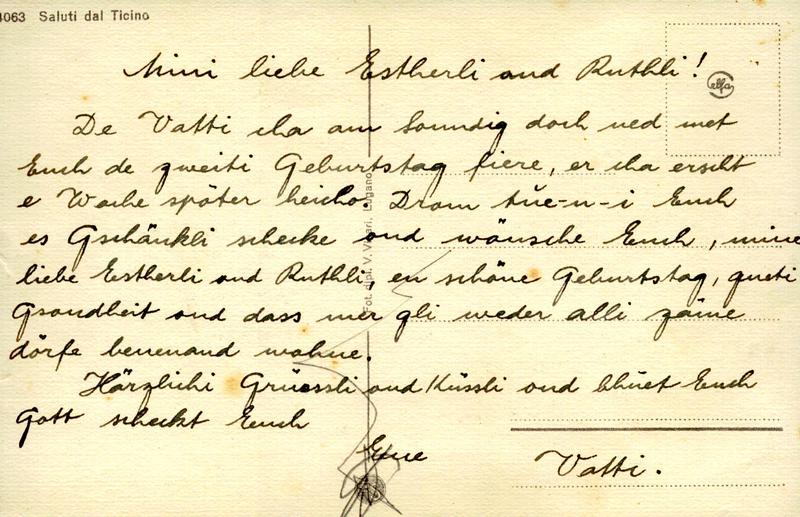 4063 Saluti dal Ticino
elfa
Mini liebe Estherli ond Ruthli!
De Vatti cha am Sonndig doch ned met
Euch de zweiti Geburtstag fiere, er cha erscht
e Woche spöter heicho. Drom tüe-n-i Euch
es Gschänkli schecke ond wönsche Euch, mine
liebe Estherli ond Ruthli, en schöne Geburtstag, gueti
Gsondheit ond dass mer gli weder alli zäme
dörfe benenand wohne.
Härzlichi Grüessli ond Küssli ond bhüet Euch
Gott scheckt Euch
Eue
Vatti.
Fot. dipl. V. Vicari, Lugano